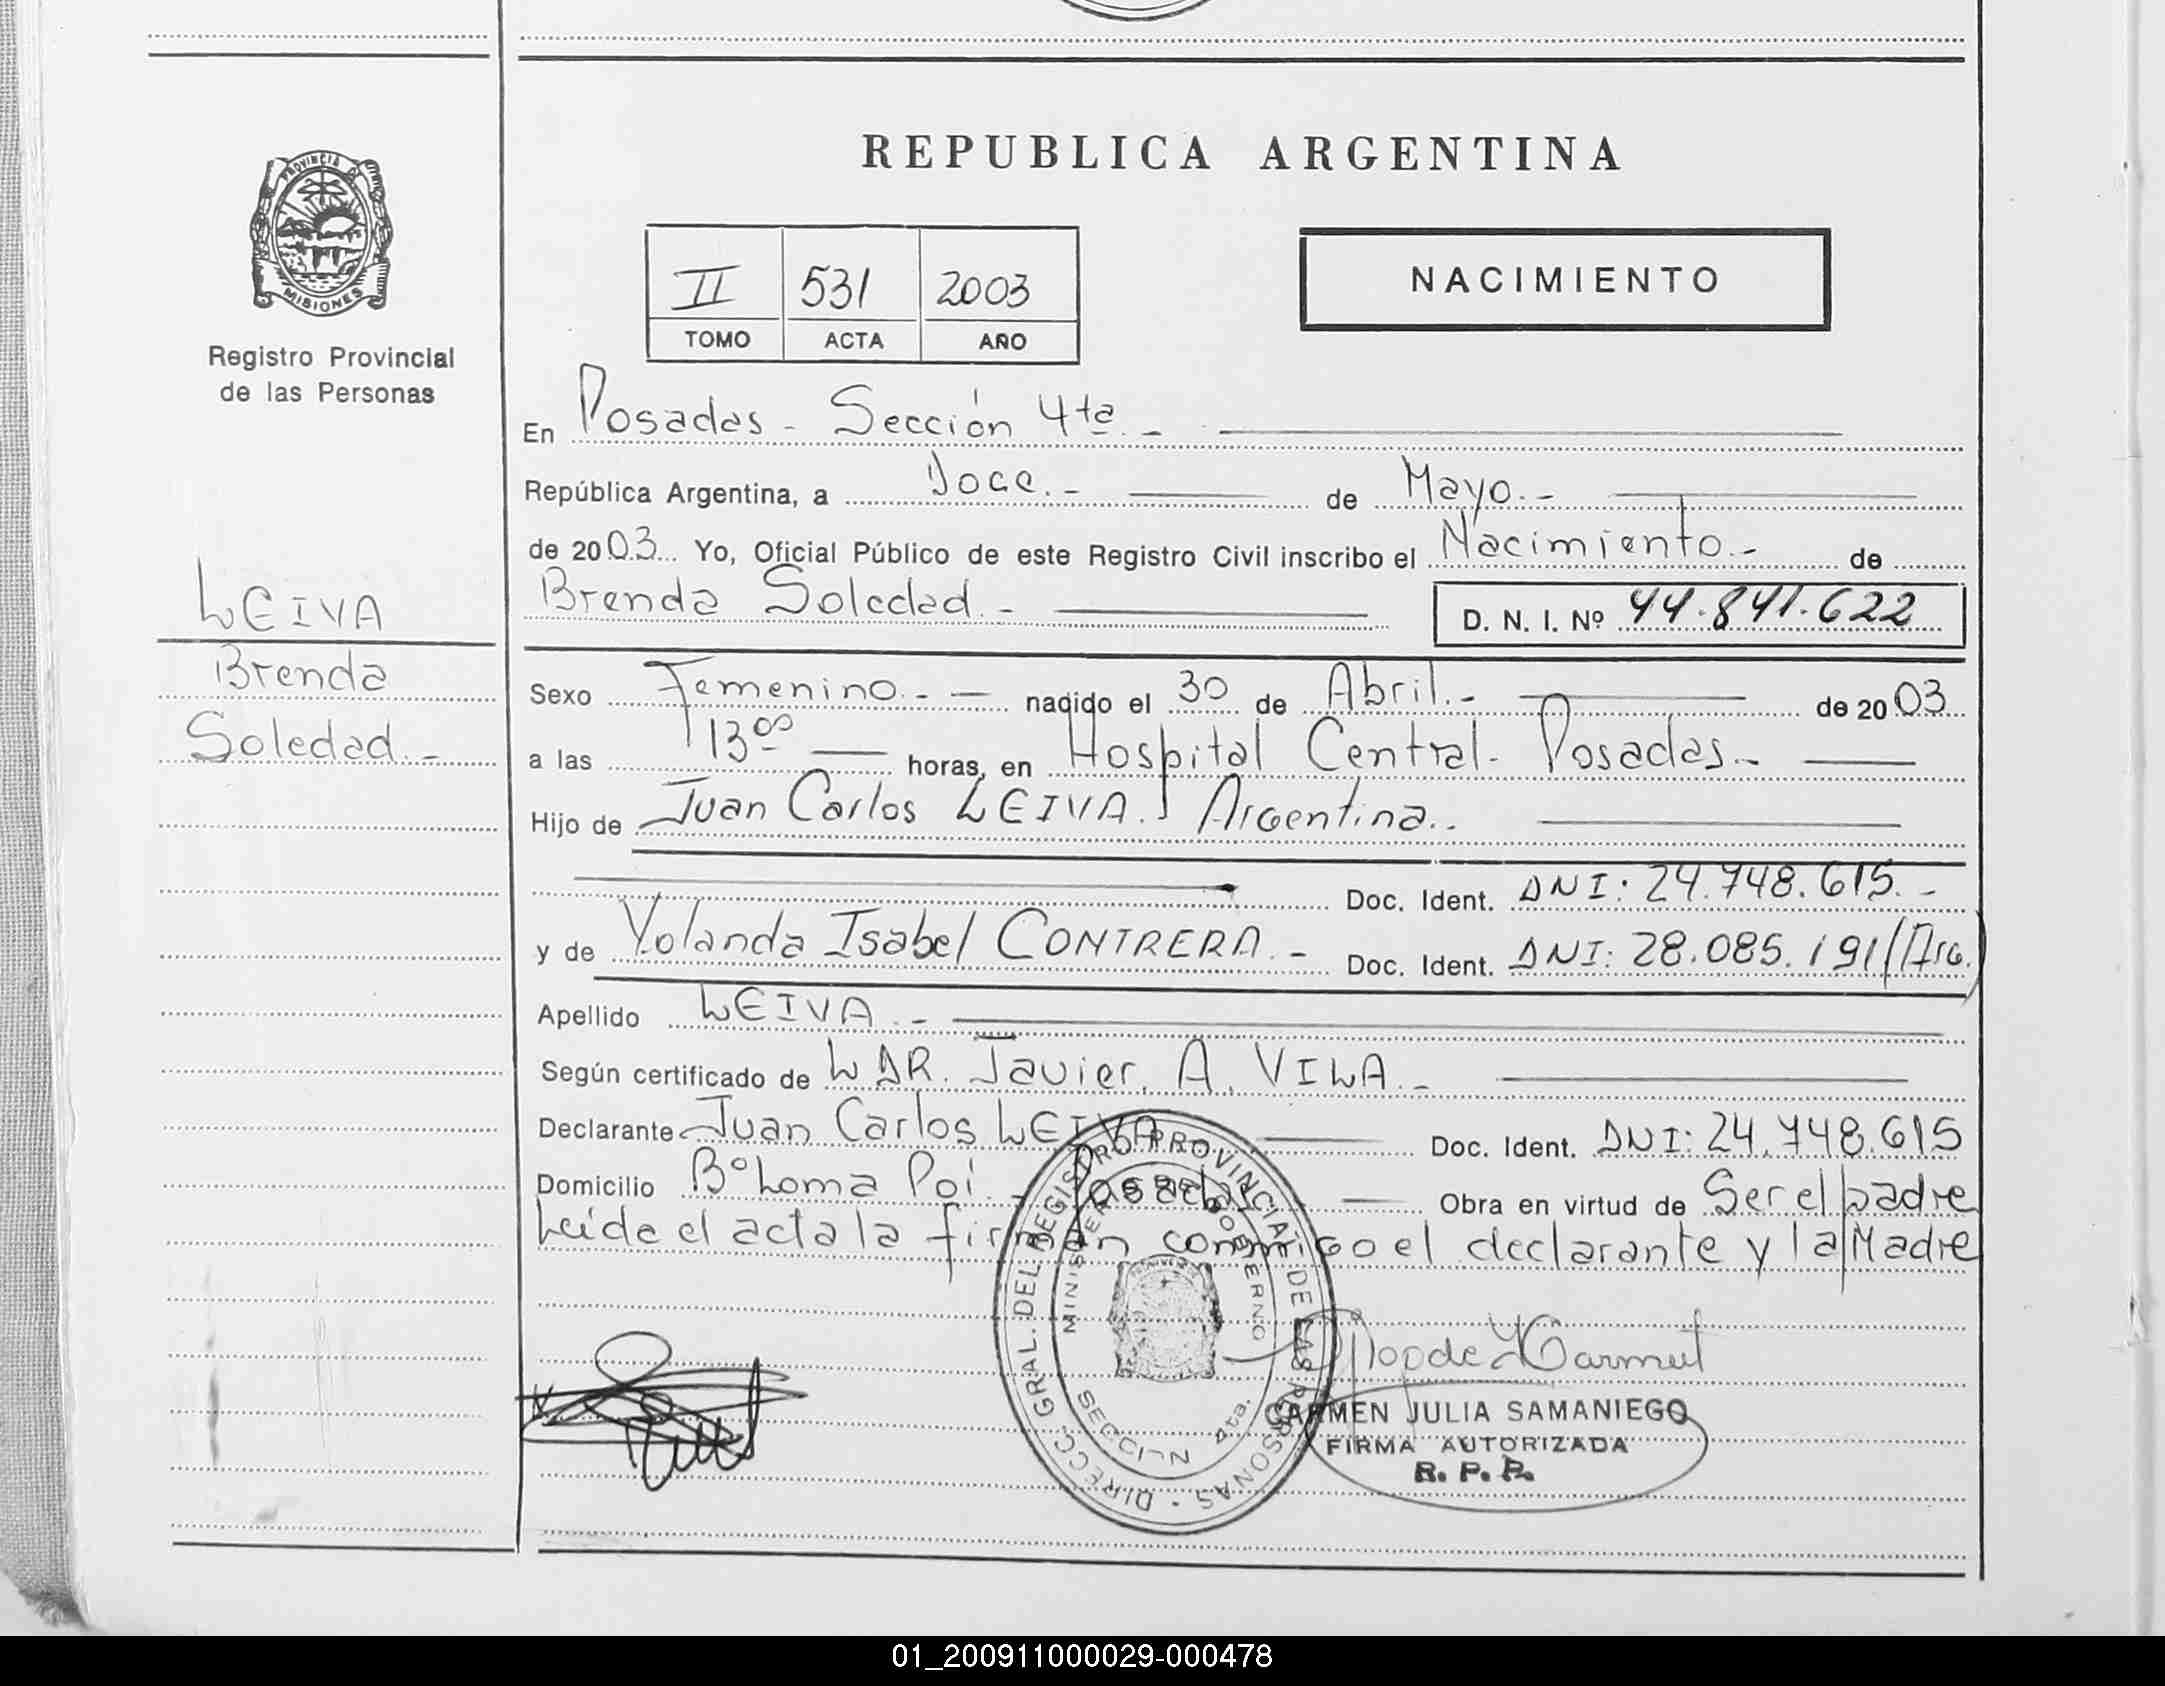 REPUBLICA ARGENTINA
PROVINCIA DE MISIONES
Registro Provincial
de las Personas
II 531 2003
TOMO ACTA AÑO
NACIMIENTO
LEIVA
Brenda
Soledad.-
En Posadas - Sección 4ta.-
República Argentina, a Doce.- de Mayo.-
de 2003 Yo, Oficial Público de este Registro Civil inscribo el Nacimiento.- de
Brenda Soledad.- D. N. I. Nº 44.841.622
Sexo Femenino.- nacido el 30 de Abril.- de 2003
a las 13 00 horas, en Hospital Central- Posadas.-
Hijo de Juan Carlos LEIVA. Argentina.
Doc. Ident. DNI: 24.748.615.-
y de Yolanda Isabel CONTRERA.- Doc. Ident. DNI: 28.085.191 (Arg.)
Apellido LEIVA.-
Según certificado de L DR. Javier. A. VILA.-
Declarante Juan Carlos LEIVA Doc. Ident. DNI: 24.748.615
Domicilio Bº Loma Poi.- Posadas Obra en virtud de Ser el padre
Leída el acta la firman conmigo el declarante y la Madre
DIRECC. GRAL. DEL REGISTRO PROVINCIAL DE LAS PERSONAS
MINISTERIO DE GOBIERNO
SECCION 4ta.
CARMEN JULIA SAMANIEGO
FIRMA AUTORIZADA
R. P. P.
01_200911000029-000478